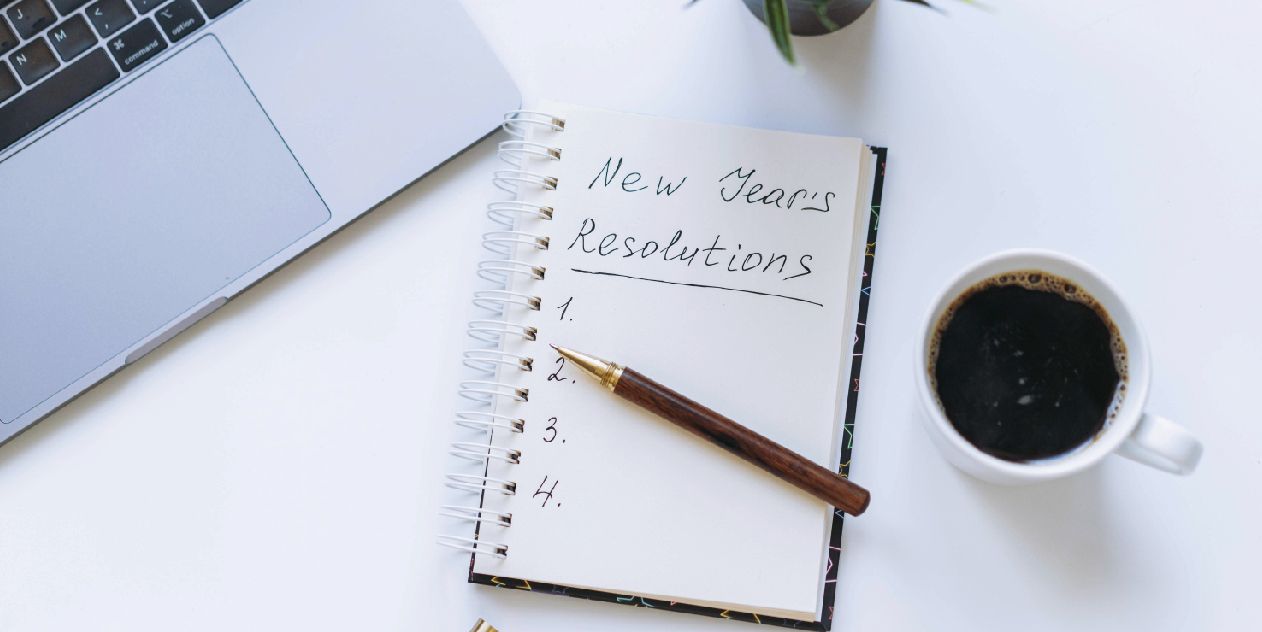 J
M
<
N
⌘
command
⌥
option
New Year's
Resolutions
1.
2.
3.
4.